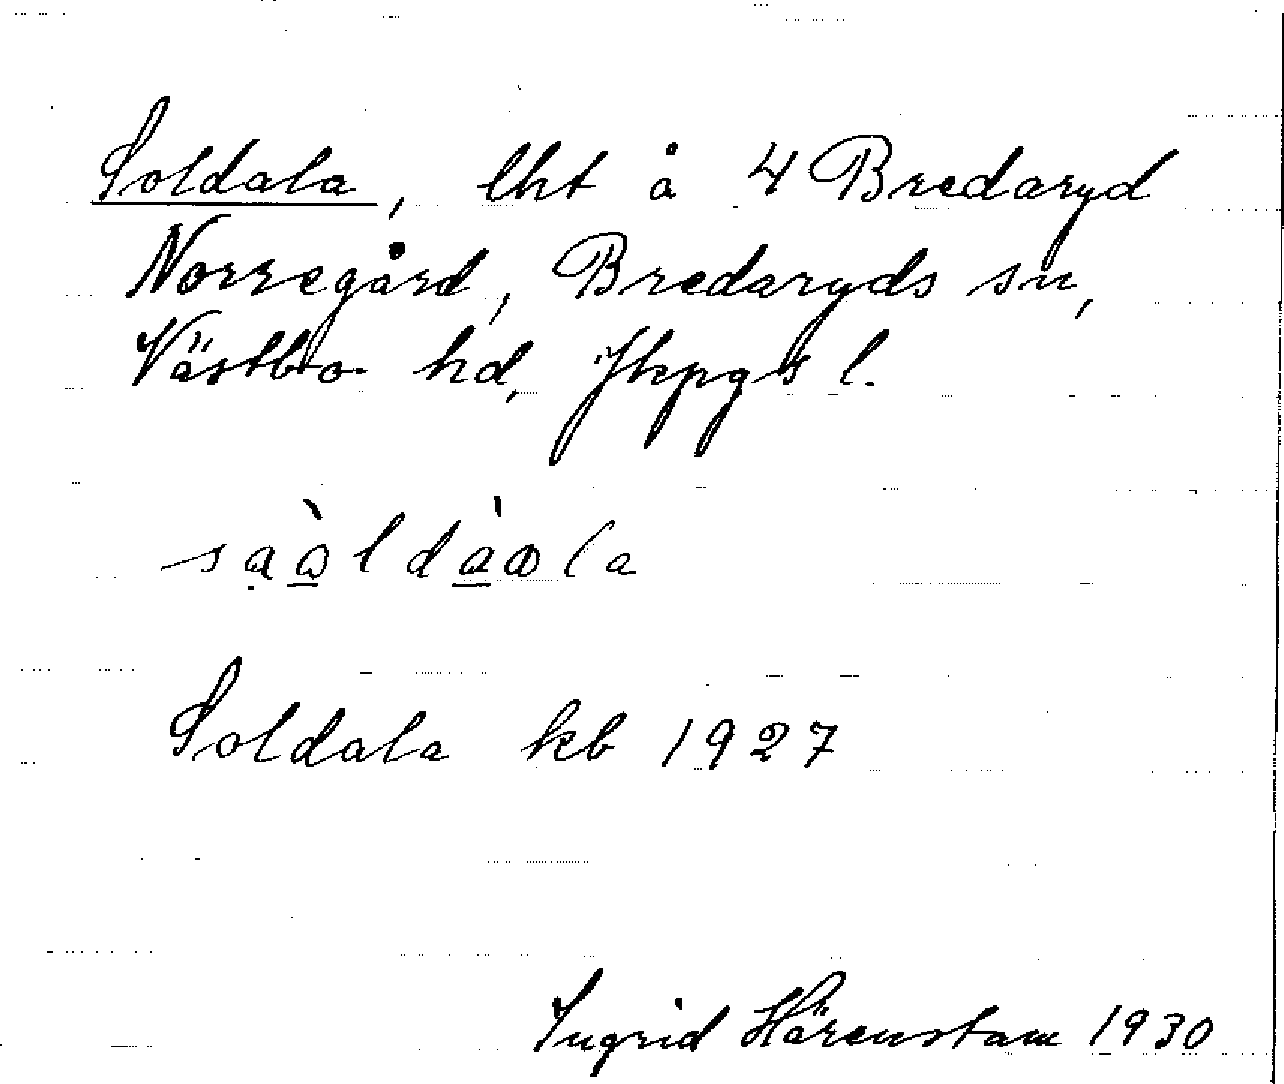 Soldala, lht å 4 Bredaryd
Norregård, Bredaryds sn,
Västbo hd, Jkpgs l.
Soldala kb 1927
Ingrid Härenstam 1930